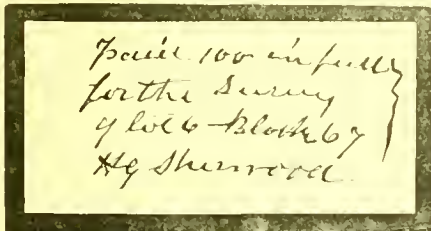 Paid 100 in full
for the Survey
of lot 6 Block 67
H G Sherwood